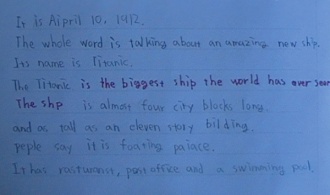 It is Aipril 10, 1912.
The whole word is talking about an amazing new ship.
Its name is Titanic.
The Titanic is the biggest ship the world has ever seen
The shp is almost four city blocks long.
and as tall as an eleven story bilding.
peple say it is foating palace.
It has rasturanst, post office and a swimming pool.